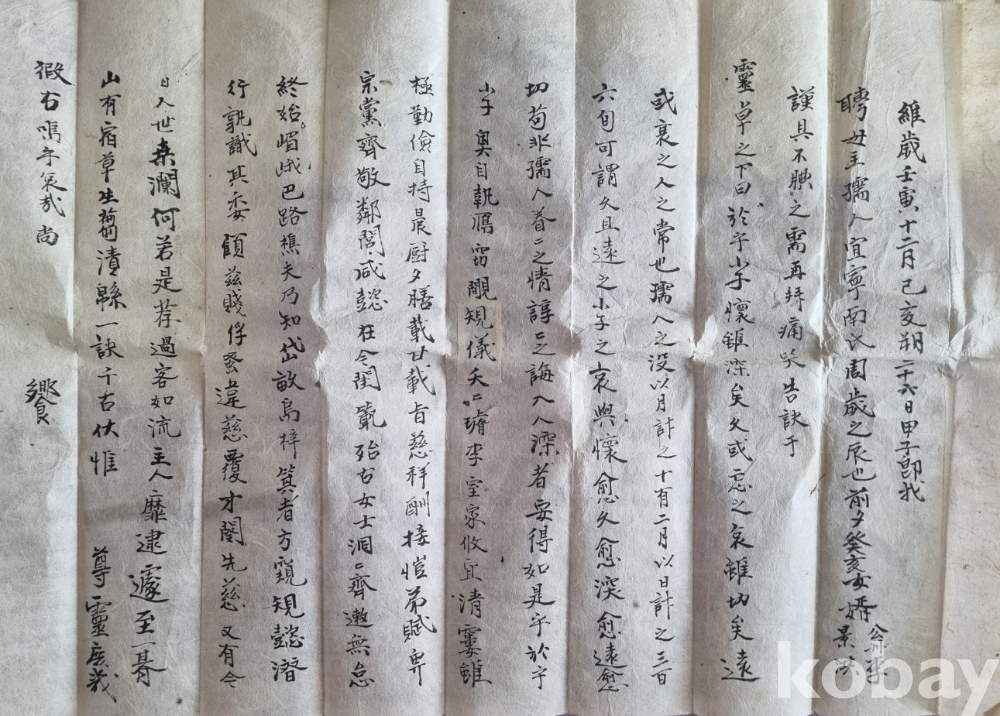 維歲壬寅十二月己亥朔二十六日甲子卽我
聘母主孺人宜寧南氏周歲之辰也前夕癸亥女婿
謹具不腆之需再拜痛哭告訣于
靈卓之下曰於乎小子懷雖深矣久或忘之哀雖切矣遠
或衰之人之常也孺人之沒以月計之十有二月以日計之三百
六旬可謂久且遠之小子之哀與懷愈久愈深愈遠愈
切苟非孺人眷二之情諄二之誨入人深者安得如是乎於乎
小子奧自執鴈 覿規儀夭二 李室家攸宜清寠雖
極勤儉自持晨廚夕膳載甘載旨慈祥酬接愷弟賦
宗黨齊敬鄰閭咸懿在今閨範殆古女士洞二齊遬無怠
終始嵋峨巴路樵夫乃知岱畝烏梓 者方 規懿潛
行孰識其委顧玆賤俘蚤違慈覆才 先慈又有令
日人世桑瀾何若是荐過客如流主人靡逮遽至一朞
山有宿草生芻漬綿一訣千古伏惟 尊靈庶幾
假右嗚乎哀哉尚
饗
kobay